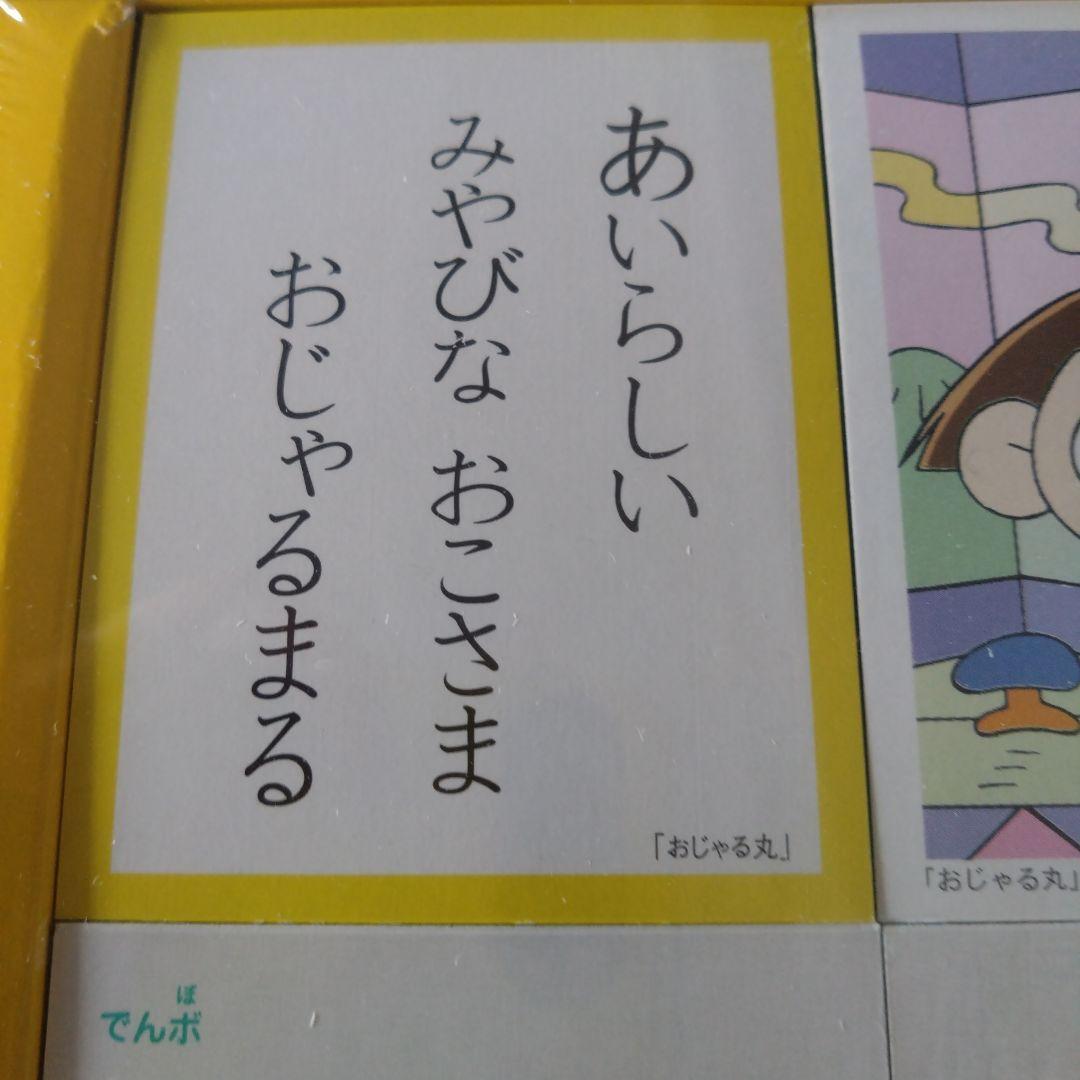 あいらしい
みやびな おこさま
おじゃるまる
「おじゃる丸」
「おじゃる丸」
ぼ
でんボ